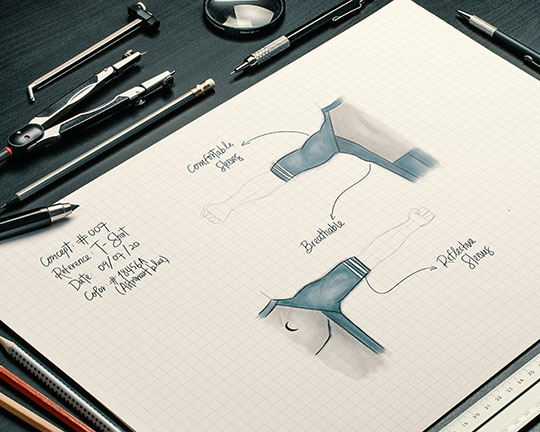 Comfortable
Sleeves
Breathable
Reflective
Sleeves
Concept #007
Reference: T-Shirt
Date: 09/07/20
Color
(Astronaut blue)